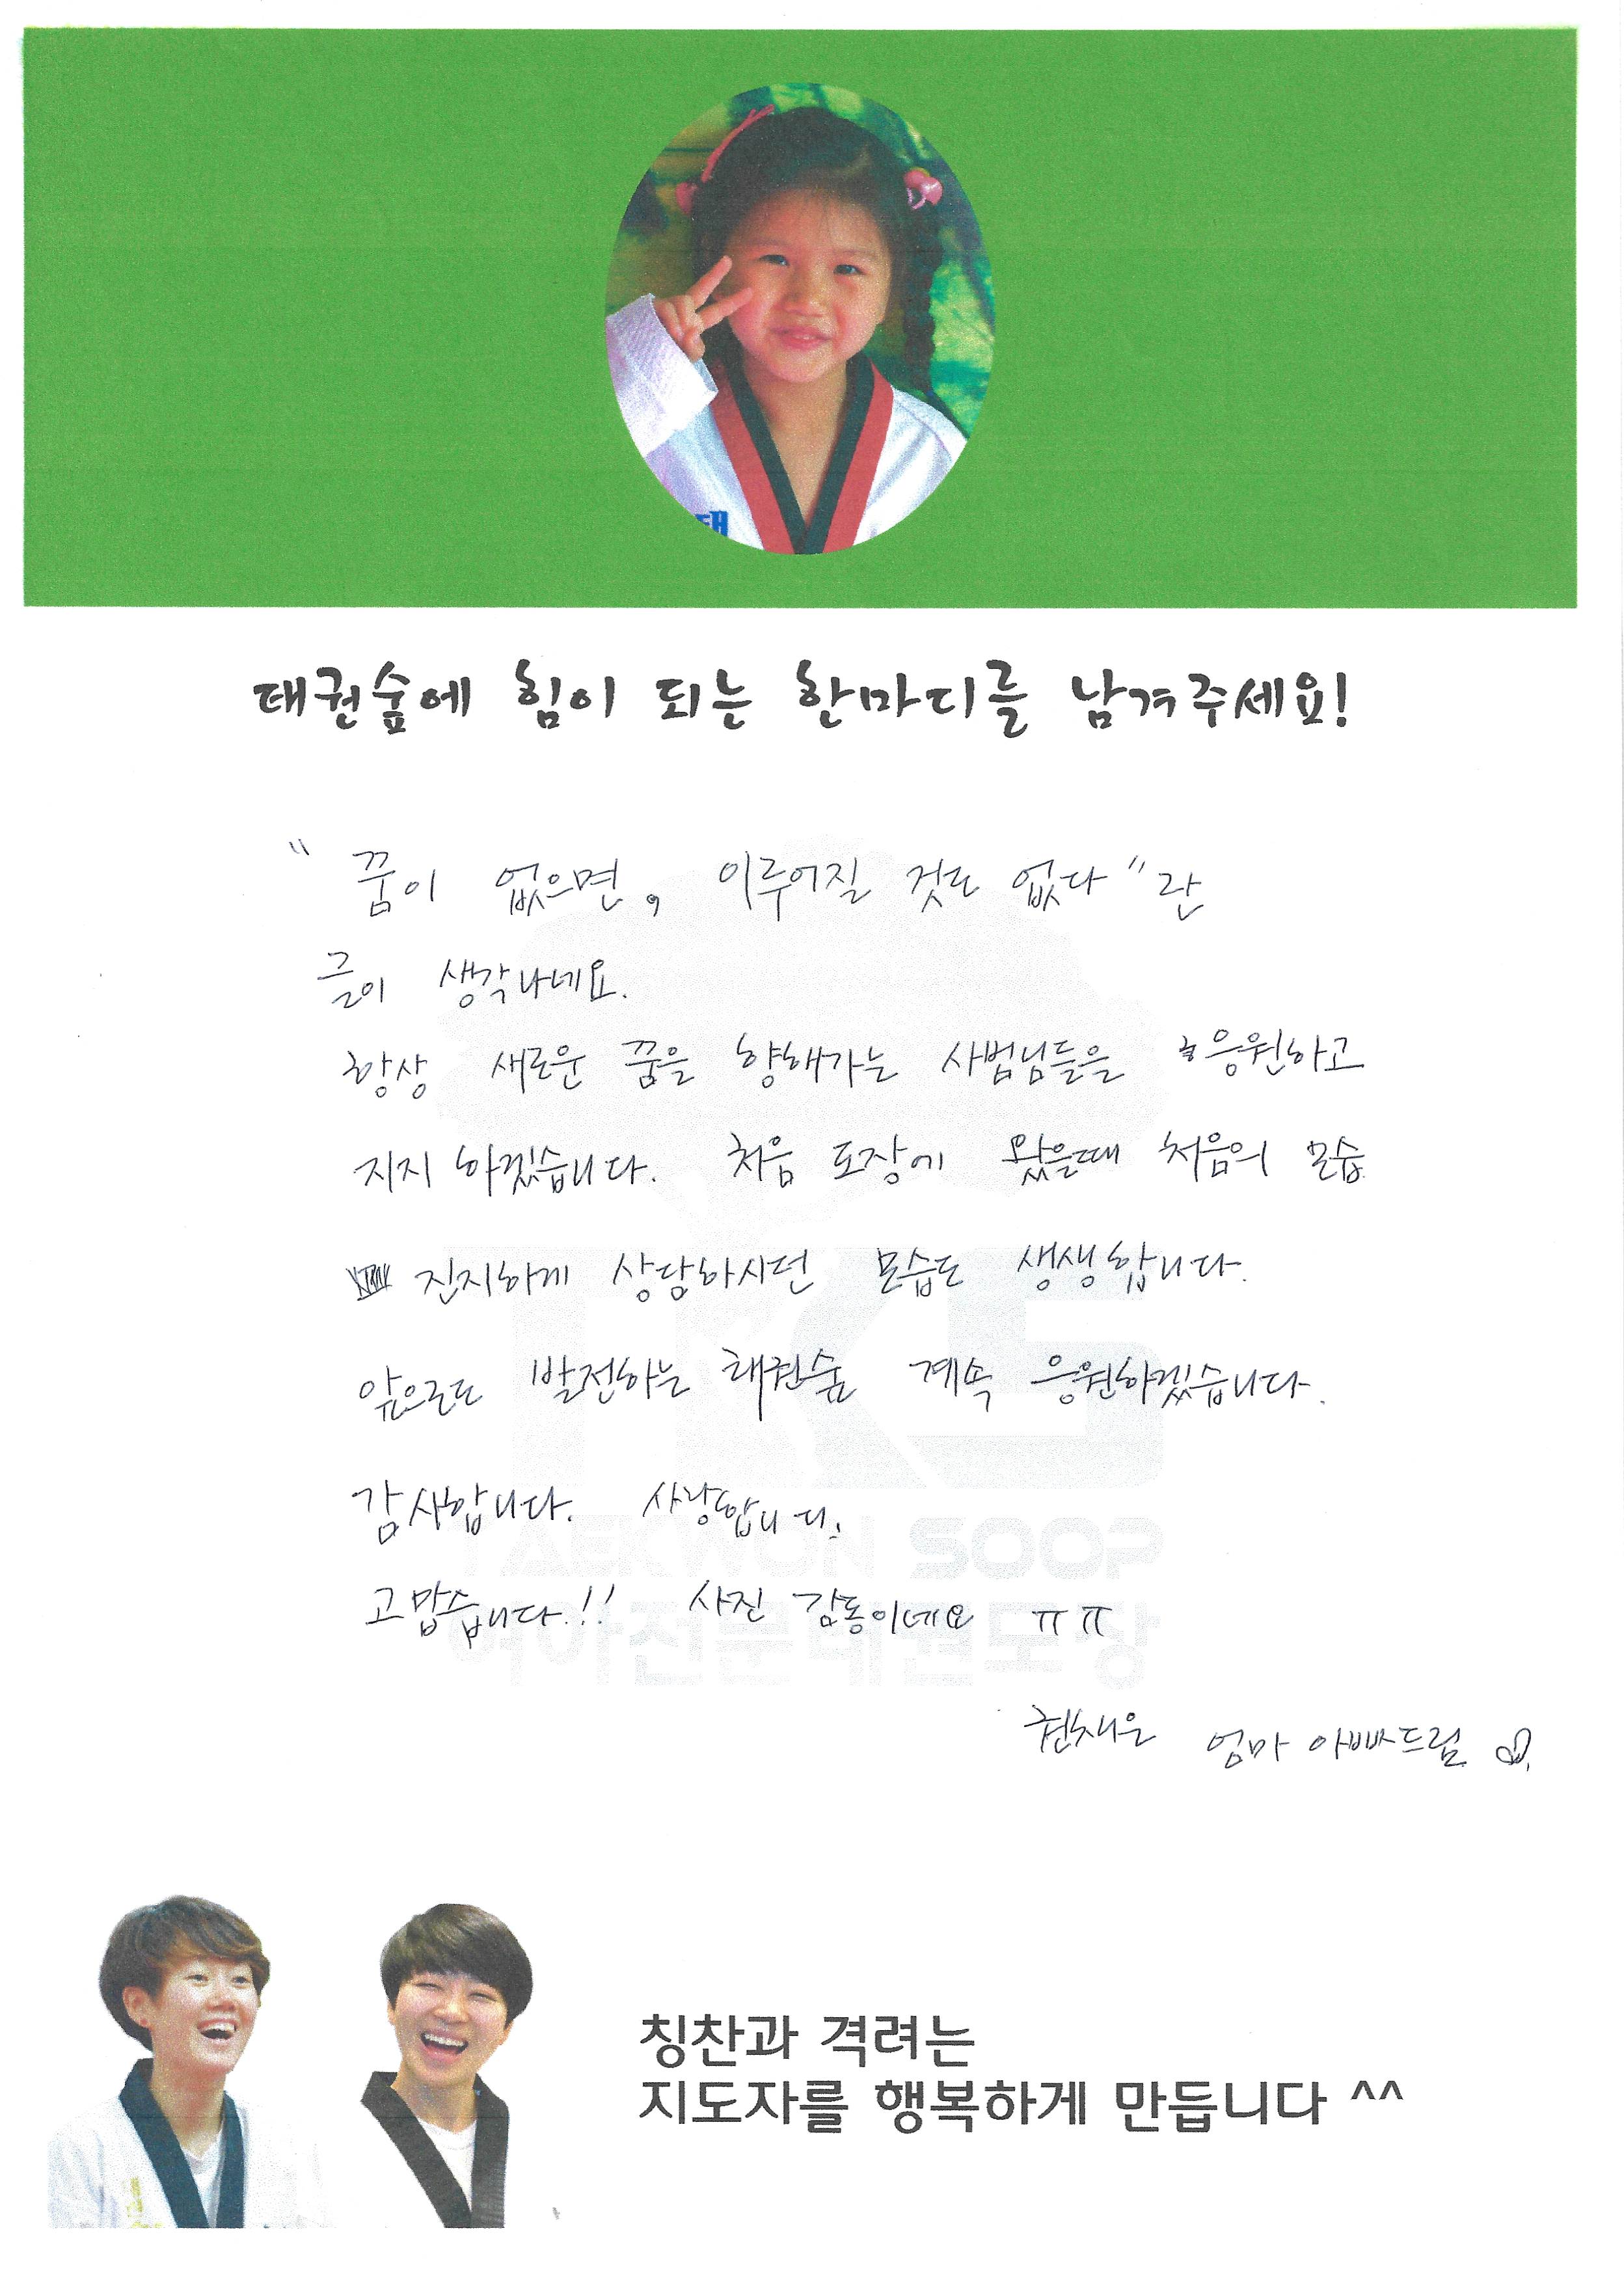 태
태권숲에 힘이 되는 한마디를 남겨주세요!
" 꿈이 없으면, 이루어질 것도 없다" 란
글이 생각나네요.
항상 새로운 꿈을 향해가는 사범님들을 응원하고
지지 하겠습니다. 처음 도장에 왔을때 처음의 모습
진지하게 상담하시던 모습도 생생합니다.
앞으로도 발전하는 태권숲 계속 응원하겠습니다.
감사합니다. 사랑합니다.
고맙습니다.!! 사진 감동이네요 ㅠㅠ
권채은 엄마 아빠드림
TKS
TAEKWON SOOP
여아전문태권도장
칭찬과 격려는
지도자를 행복하게 만듭니다 ^^